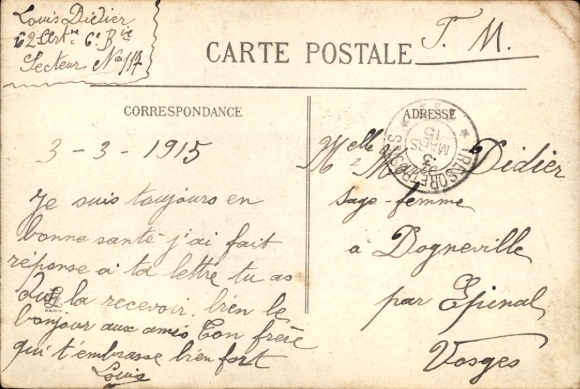 Louis Didier
62 Artie 6e Bie
Secteur No 117
CARTE POSTALE
F. M.
CORRESPONDANCE
ADRESSE
TRESOR ET POSTES
3
MARS
15
3-3-1915
Je suis toujours en
bonne santé j'ai fait
réponse a ta lettre tu as
dut la recevoir. bien le
bonjour aux amis Ton frère
qui t'embrasse bien fort
Louis
Melle Didier
sage-femme
à Dogneville
par Epinal
Vosges